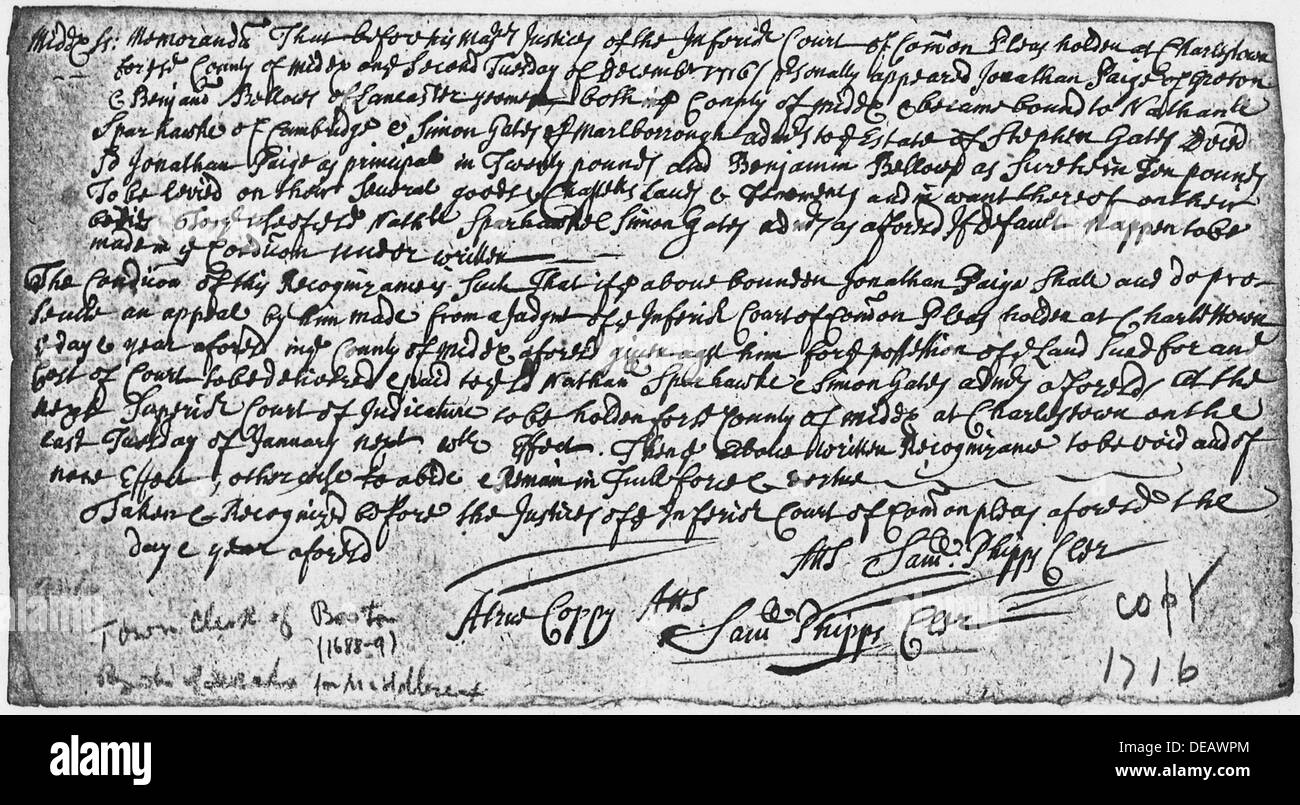 Middx ss: Memorand~ That before his Majts Justices of the Inferiour Court of Comon Pleas holden at Charlestown
for sd County of Middx on ye Second Tuesday of December 1716 personally appeared Jonathan Paige of Groton
& Benja Bellows of Lancaster yeomen both in ye County of Middx & became bound to Nathanll
Sparhawke of Cambridge & Simon Gates of Marlborrough admrs to ye Estate of Stephen Gates Decd
sd Jonathan Paige as principal in Twenty pounds and Benjamin Bellows as Suretie in Ten pounds
To be levied on their Several goods & Chattels Lands & Tenements and in want thereof on their
bodies To ye use of ye sd Nathll Sparhawke & Simon Gates admrs as aforesd If default happen to be
made in ye Condition under written
The Condition of this Recognizance is Such That if ye above bounden Jonathan Paige Shall and do pro-
secute an appeal by him made from a Judgmt of ye Inferiour Court of Comon Pleas holden at Charlestown
ye day & year aforesd in ye County of Middx aforesd given agst him for ye possession of ye Land sued for and
Cost of Court to be delivered & paid to ye sd Nathan Sparhawke & Simon Gates admrs aforesd, At the
next Superiour Court of Judicature to be holden for sd County of Middx at Charlestown on the
last Tuesday of January next with Effect. Then ye above written Recognizance to be void and of
none Effect, otherwise to abide & Remain in Full force & vertue
Taken & Recognized before the Justices of ye Inferiour Court of Comon pleas aforesd the
day & year aforesd
Atts Saml. Phipps Cler
A true Coppy Atts
Saml Phipps Cler
copy
1716
Town Clerk of Boston
(1688-9)
for Middlesex
alamy
alamy
Image ID: DEAWPM
www.alamy.com